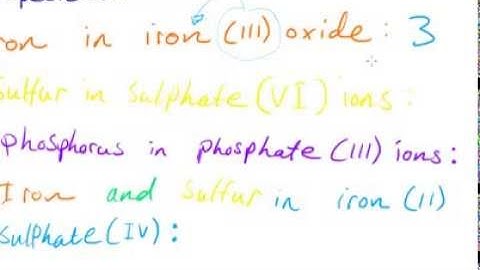 ron in iron (III) oxide : 3
Sulfur in Sulphate (VI) ions :
phosphorus in phosphate (III) ions :
Iron and Sulfur in iron (II)
sulphate (IV) :